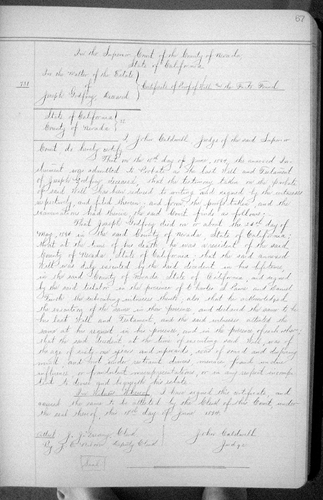 67
In the Superior Court of the County of Nevada,
State of California
In the Matter of the Estate
of
Joseph Godfrey, Deceased
Certificate of Proof of Will and the Facts Found
State of California } ss
County of Nevada
I, John Caldwell, Judge of the said Superior
Court do hereby certify
That on the day of June, 1880, the annexed In-
strument was admitted to Probate as the last Will and Testament
of Joseph Godfrey deceased, that the testimony taken on the probate
of said Will was reduced to writing and signed by the witnesses
respectively, and filed therein, and from the proofs taken, and the
examinations had therein the said Court finds as follows:
That Joseph Godfrey died on or about the day of
May, 1880, in the said County of Nevada, State of California;
that at the time of his death he was a resident of the said
County of Nevada, State of California, that the said annexed
Will was duly executed by the said decedent in his lifetime,
in the said County of Nevada State of California, and signed
by the said testator in the presence of and
the subscribing witnesses thereto, also that he acknowledged
the execution of the same in their presence and declared the same to be
his last Will and Testament, and the said witnesses attested the
same at his request in his presence, and in the presence of each other,
that the said decedent at the time of executing said Will, was of
the age of eighteen years and upwards, was of sound and disposing
mind, and not under restraint, duress, menace, fraud, undue
influence, or fraudulent misrepresentations, or in any respect incompe-
tent to devise and bequeath his estate.
In Witness Whereof, I have signed this certificate, and
caused the same to be attested by the Clerk of said Court, under
the seal thereof, this day of June 1880.
Attest Clerk
By Deputy Clerk
John Caldwell
Judge
Seal